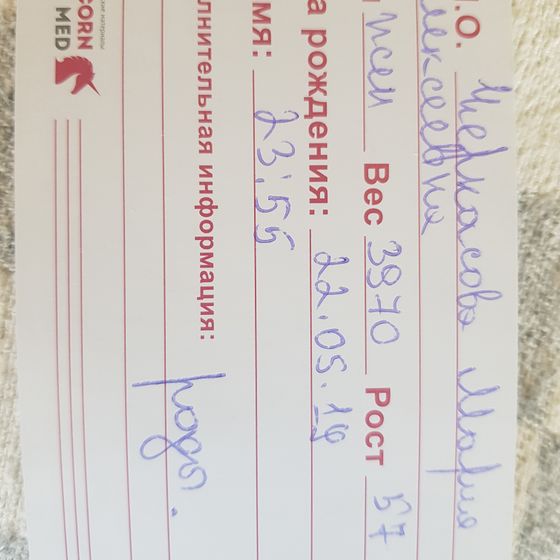 .О. Мария
лексеевна
жен Вес 3970 Рост 57
а рождения: 22.05.19
мя: 23:55
лнительная информация:
CORN
MED